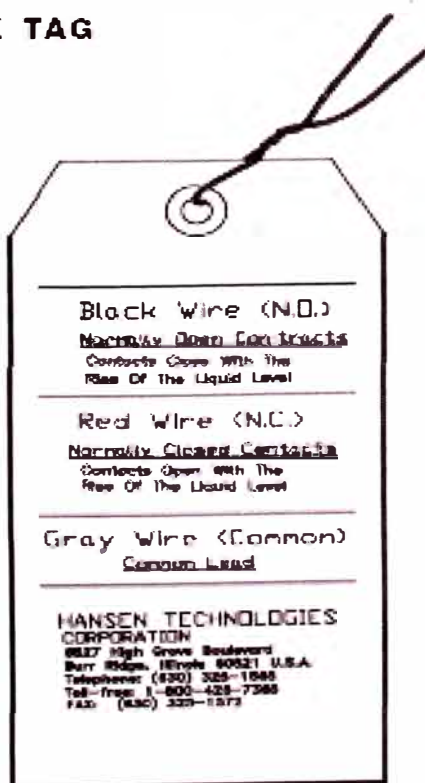 TAG
Black Wire (N.O.)
Normally Open Contracts
Contacts Close With The
Rise Of The Liquid Level
Red Wire (N.C.)
Normally Closed Contacts
Contacts Open With The
Rise Of The Liquid Level
Gray Wire (Common)
Common Lead
HANSEN TECHNOLOGIES
CORPORATION
6827 High Grove Boulevard
Burr Ridge, Illinois 60521 U.S.A.
Telephone: (630) 325-1565
Toll-free: 1-800-426-7368
FAX: (630) 325-1572